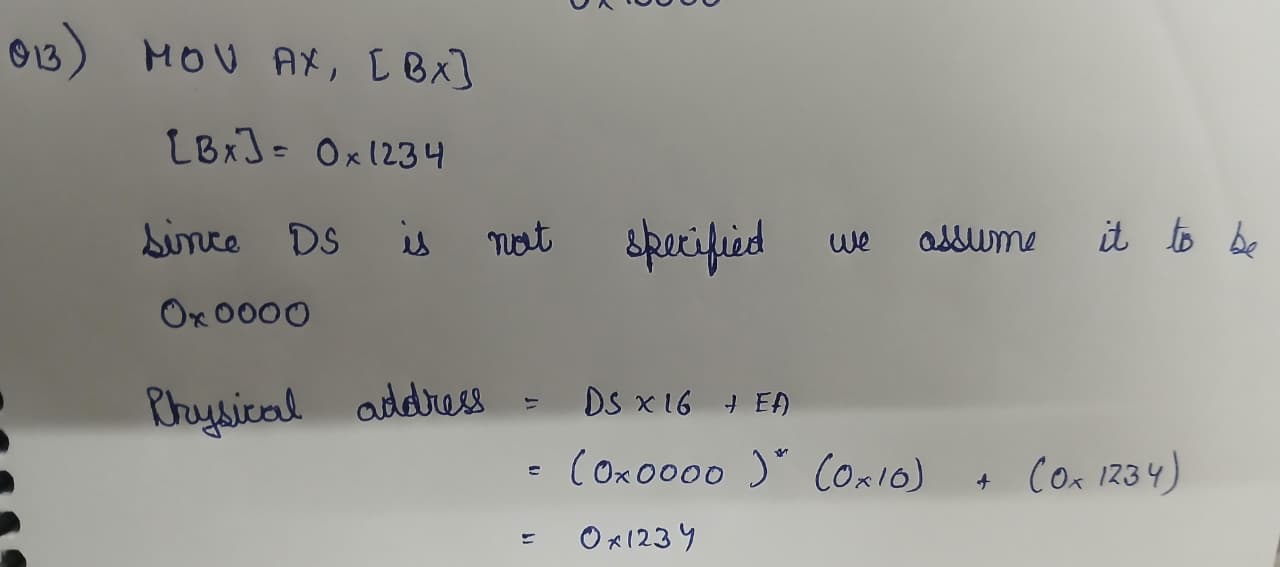 Q13) MOV AX, [BX]
[BX] = 0x1234
Since DS is not specified we assume it to be
0x0000
Physical address = DS x 16 + EA
= (0x0000) * (0x10) + (0x1234)
= 0x1234